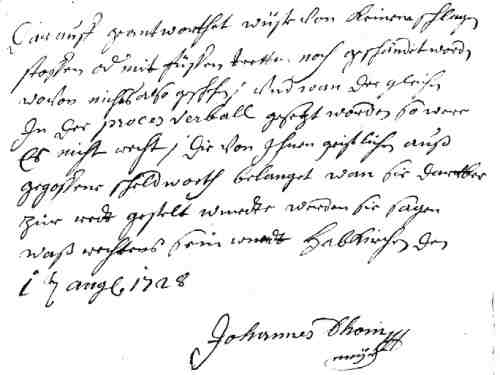 Darauff geantworthet wüste von keinem schlagen
stossen od mit füssen tretten noch geschändet word
wovon nichts also geschehen, und wan der gleichen
In der proces verball gesetzt worden so were
Es nicht recht, die von Ihnen geistlichen auß
gegossene scheldworth belanget wan sie darüber
zur rede gestelt wurde werden sie sagen
waß rechtens sein wurdt Habkirchen den
17 aug 1728
Johannes Thom